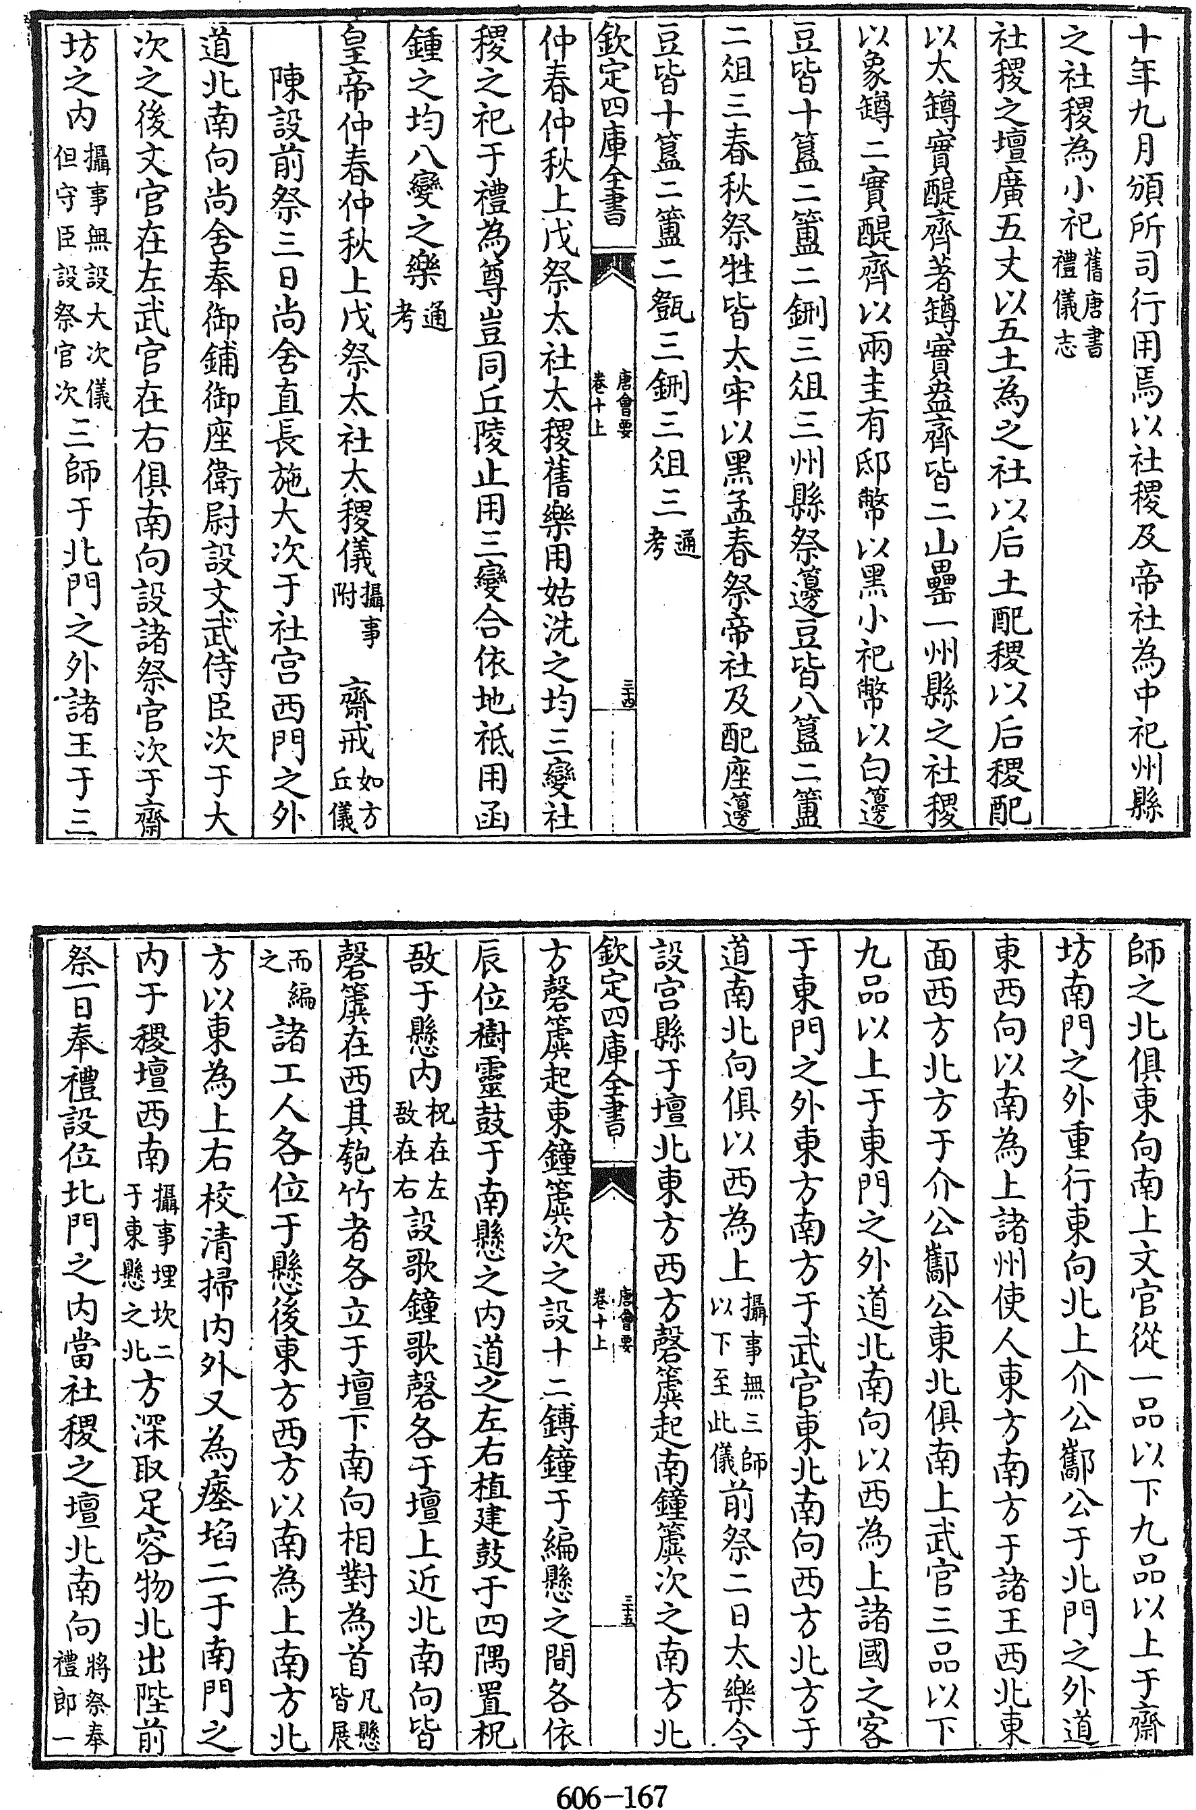 十年九月頒所司行用焉以社稷及帝社為中祀州縣
之社稷為小祀舊唐書禮儀志
社稷之壇廣五丈以五土為之社以后土配稷以后稷配
以太罇實醍齊著罇實盎齊皆二山罍一州縣之社稷
以象罇二實醍齊以兩圭有邸幣以黑小祀幣以白籩
豆皆十簋二簠二鉶三俎三州縣祭籩豆皆八簋二簠
二俎三春秋祭牲皆太牢以黑孟春祭帝社及配座籩
豆皆十簋二簠二㽅三鉶三俎三通考
欽定四庫全書
唐會要
卷十上
三十四
仲春仲秋上戊祭太社太稷舊樂用姑洗之均三變社
稷之祀于禮為尊豈同丘陵止用三變合依地祗用函
鍾之均八變之樂通考
皇帝仲春仲秋上戊祭太社太稷儀攝事附 齋戒如方丘儀
陳設前祭三日尚舍直長施大次于社宮西門之外
道北南向尚舍奉御鋪御座衛尉設文武侍臣次于大
次之後文官在左武官在右俱南向設諸祭官次于齋
坊之内攝事無設大次儀但守臣設祭官次三師于北門之外諸王于三
師之北俱東向南上文官從一品以下九品以上于齋
坊南門之外重行東向北上介公酅公于北門之外道
東西向以南為上諸州使人東方南方于諸王西北東
面西方北方于介公酅公東北俱南上武官三品以下
九品以上于東門之外道北南向以西為上諸國之客
于東門之外東方南方于武官東北南向西方北方于
道南北向俱以西為上攝事無三師以下至此儀前祭二日太樂令
設宮縣于壇北東方西方磬簴起南鐘簴次之南方北
欽定四庫全書
唐會要
卷十上
三十五
方磬簴起東鐘簴次之設十二鎛鐘于編懸之間各依
辰位樹靈鼓于南懸之内道之左右植建鼓于四隅置柷
敔于懸内柷在左敔在右設歌鐘歌磬各于壇上近北南向皆
磬簴在西其匏竹者各立于壇下南向相對為首凡懸皆展
而編之諸工人各位于懸後東方西方以南為上南方北
方以東為上右校清掃内外又為瘞埳二于南門之
内于稷壇西南攝事埋坎二于東懸之北方深取足容物北出陛前
祭一日奉禮設位北門之内當社稷之壇北南向將祭奉禮郎一
606-167